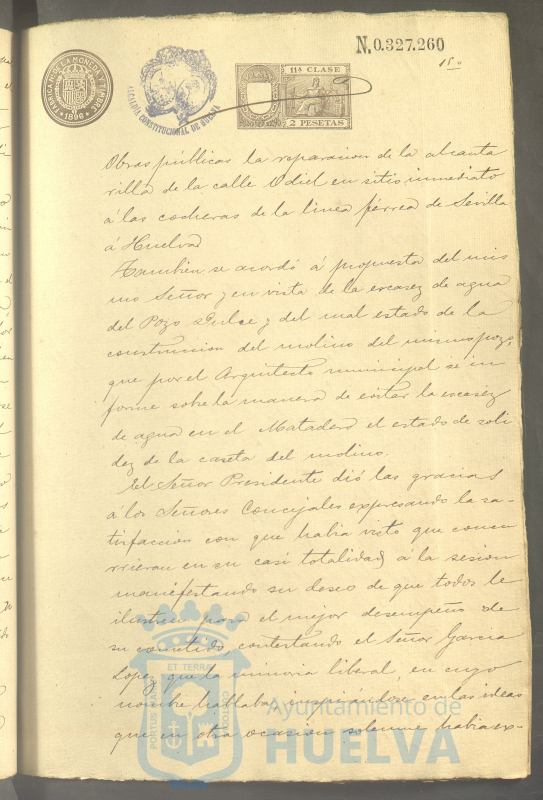 N.0.327.260
FÁBRICA N. DE LA MONEDA Y TIMBRE
1896
ALCALDIA CONSTITUCIONAL DE HUELVA
11ª CLASE
2 PESETAS
Obras públicas la reparacion de la alcanta
rilla de la calle Odiel en sitio inmediato
á las cocheras de la linea férrea de Sevilla
á Huelva
Tambien se acordó á propuesta del mis
mo Señor y en vista de la escasez de agua
del Pozo Dulce y del mal estado de la
construccion del molino del mismo pozo,
que por el Arquitecto municipal se in
forme sobre la manera de evitar la escasez
de agua en el Matadero el estado de soli
dez de la caseta del molino.
El Señor Presidente dió las gracias
á los Señores Concejales expresando la sa-
tisfaccion con que habia visto que concu
rrieran en su casi totalidad á la sesion
manifestando su deseo de que todos le
ilustren para el mejor desempeño de
su cometido, contestando el Señor Garcia
Lopez que la minoria liberal, en cuyo
nombre hablaba, inspirándose en las ideas
que en otra ocasion solemne habia ex-
PORTUS MARIS
ET TERRAE
CUSTODIA
Ayuntamiento de
HUELVA